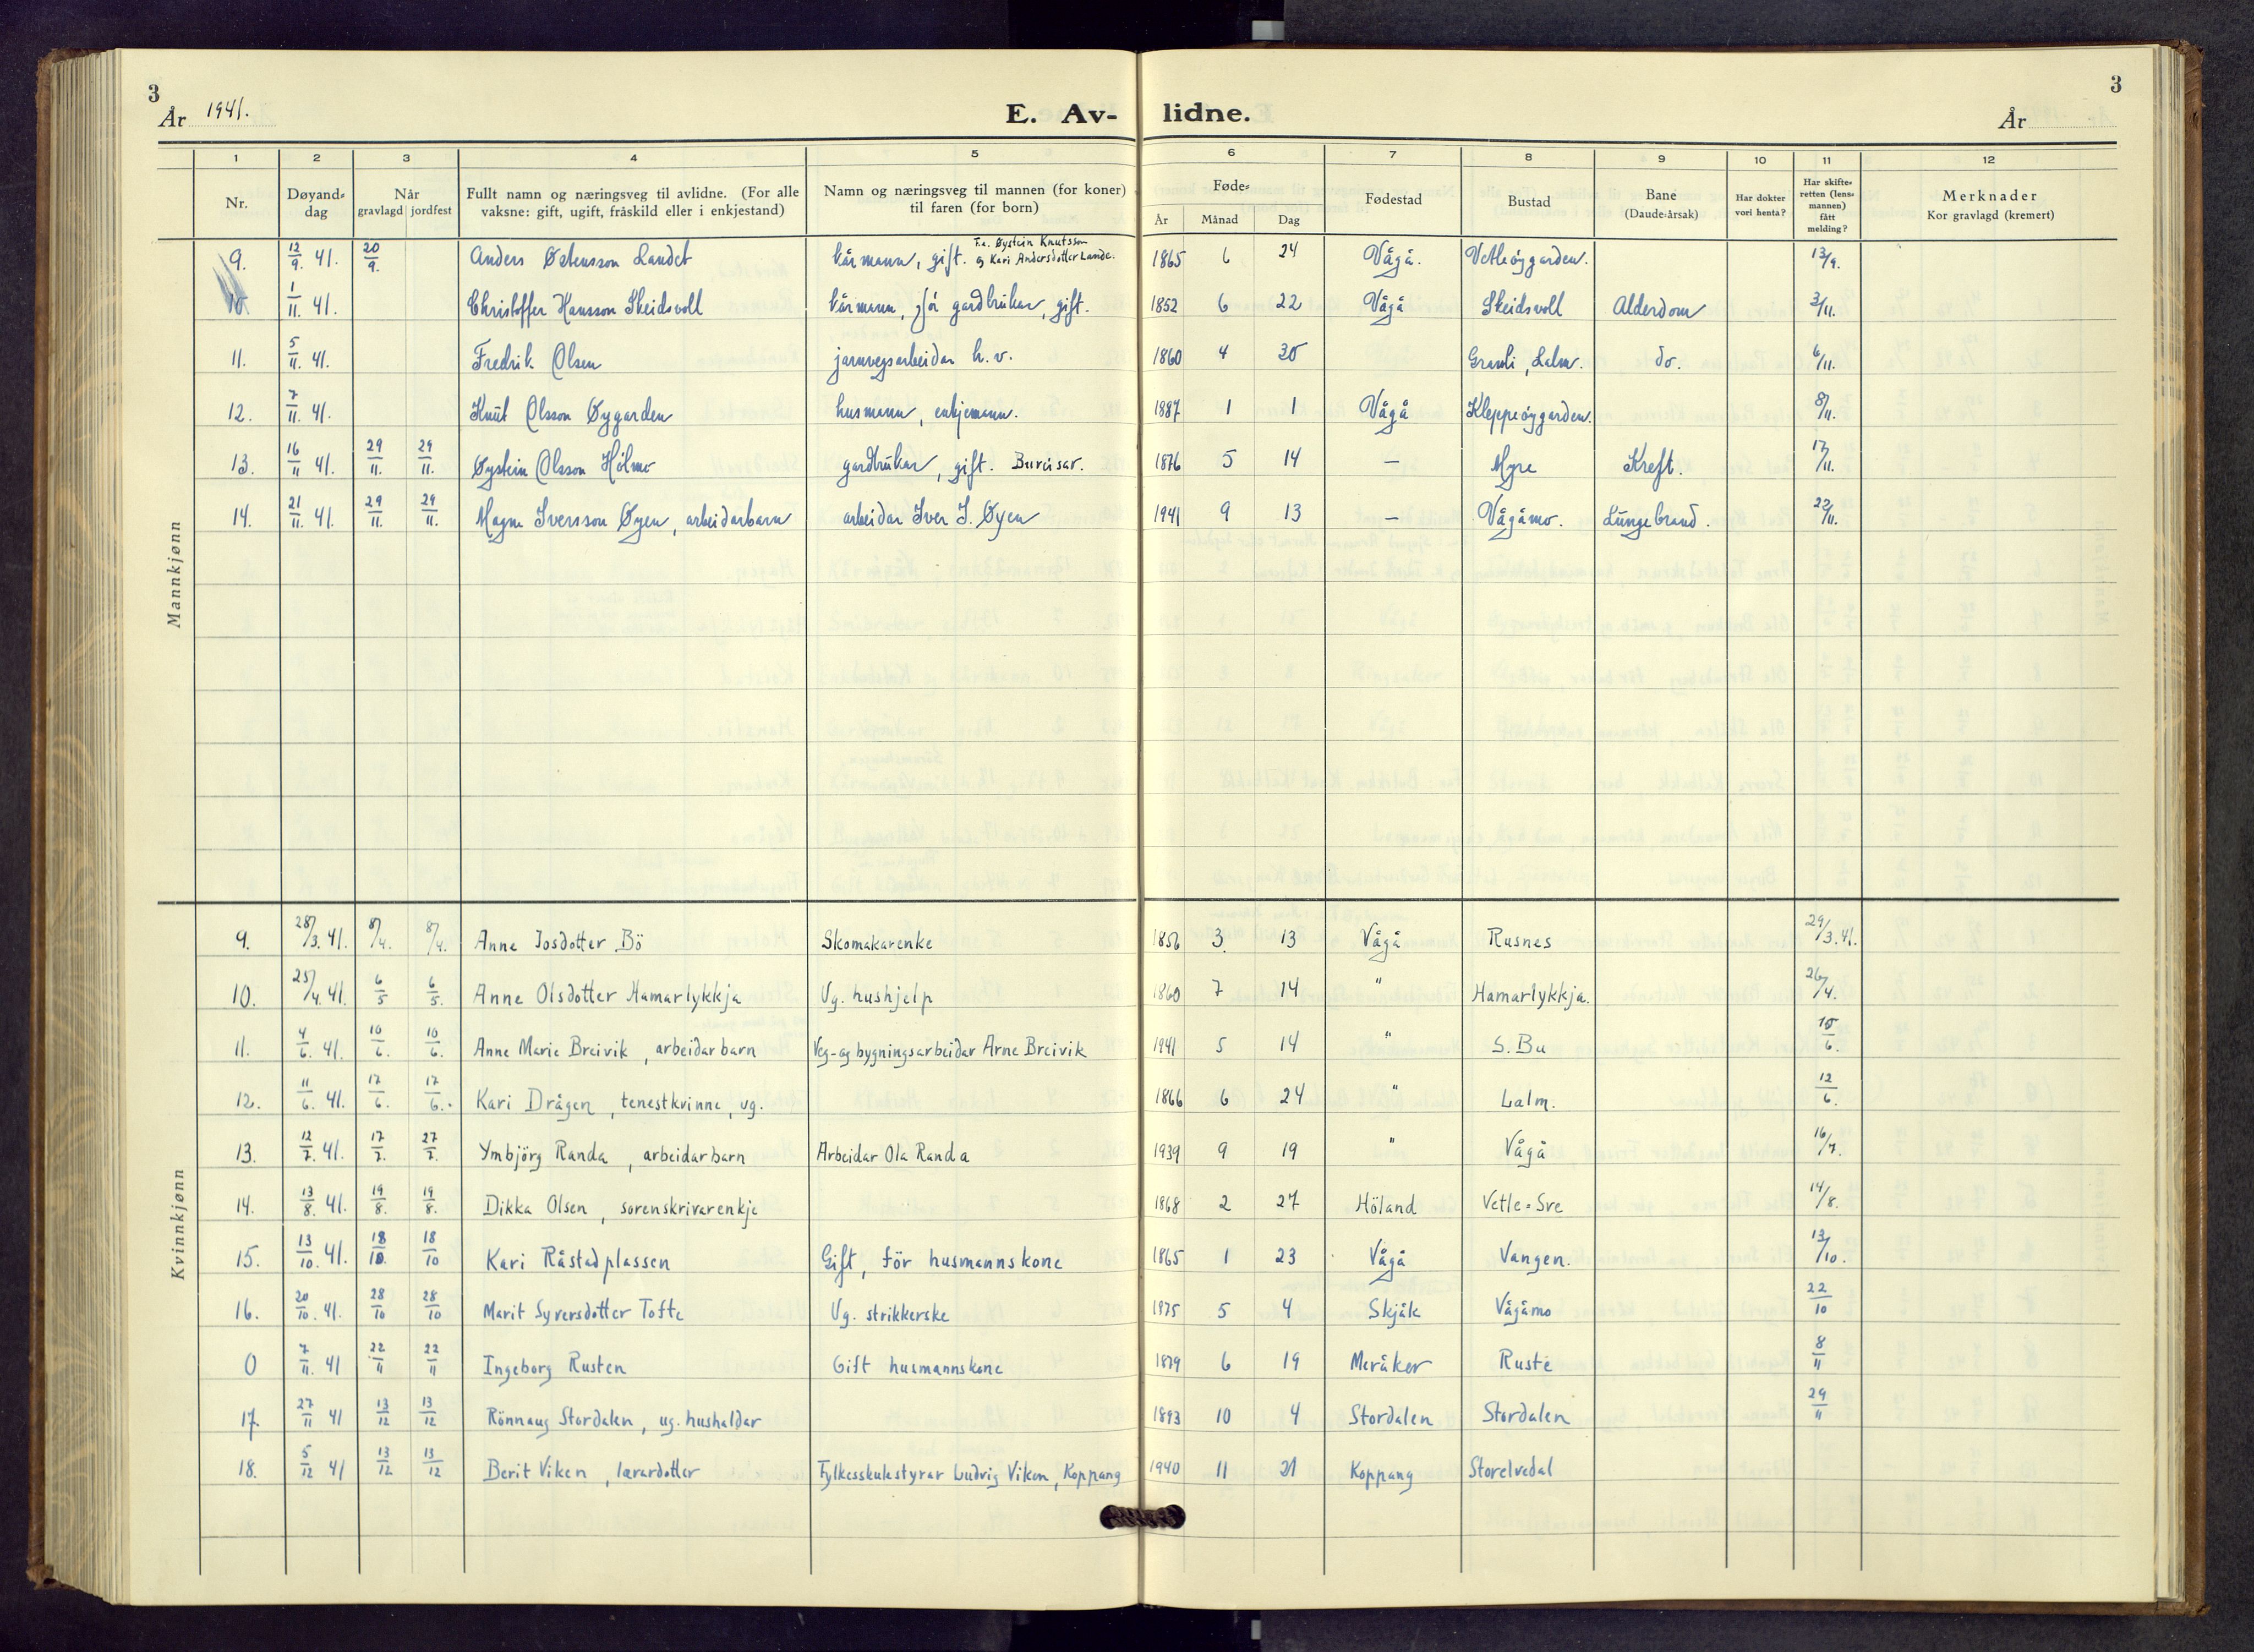 3
År 1941.
E. Av-
lidne.
3
År
1 2 3 4 5 6 7 8 9 10 11 12
Nr. Døyand=dag Når gravlagd jordfest Fullt namn og næringsveg til avlidne. (For alle vaksne: gift, ugift, fråskild eller i enkjestand) Namn og næringsveg til mannen (for koner) til faren (for born) Føde= År Månad Dag Fødestad Bustad Bane (Daude-årsak) Har dokter vori henta? Har skifte=retten (lens=mannen) fått melding? Merknader Kor gravlagd (kremert)
Mannkjønn
9. 12/9. 41. 20/9. Anders Østensson Landet kårmann, gift. F.a. Øystein Knutsson og Kari Andersdotter Lande. 1865 6 24 Vågå. Vetleøygarden. 13/9.
10 1/11. 41. Christoffer Hansson Skeidsvoll kårmann, før gardbrukar, gift. 1852 6 22 Vågå Skeidsvoll Alderdom 3/11.
11. 5/11. 41. Fredrik Olsen jarnvegsarbeidar h.v. 1860 4 30 Gramli, Lalm. do. 6/11.
12. 7/11. 41. Knut Olsson Øygarden husmann, enkjemann. 1887 1 1 Vågå Kleppeøygarden. 8/11.
13. 16/11 41. 29/11. 29/11. Øystein Olsson Holmo gardbrukar, gift. Bureisar. 1876 5 14 — Myre Kreft. 17/11.
14. 21/11. 41. 29/11. 29/11. Magne Iversson Øyen, arbeidarbarn arbeidar Iver I. Øyen 1941 9 13 — Vågåmo. Lungebrand. 22/11.
Kvinnkjønn
9. 28/3. 41. 8/4. 8/4. Anne Josdotter Bö Skomakarenke 1856 3. 13 Vågå Rusnes 29/3. 41.
10. 25/4. 41. 6/5 6/5. Anne Olsdotter Hamarlykkja Ug. hushjelp 1860 7 14 " Hamarlykkja. 26/4.
11. 4/6. 41. 10/6. 10/6. Anne Marie Breivik, arbeidarbarn Veg-og bygningsarbeidar Arne Breivik 1941 5 14 " S. Bu 10/6.
12. 11/6. 41. 17/6. 17/6. Kari Drågen, tenestkvinne, ug. 1866 6 24 " Lalm. 12/6.
13. 12/7. 41. 17/7. 27/7. Ymbjörg Randa, arbeidarbarn Arbeidar Ola Randa 1939 9 19 " Vågå 16/7.
14. 13/8. 41. 19/8. 19/8. Dikka Olsen, sorenskrivarenkje 1868 2 27 Höland Vetle=Sve 14/8.
15. 13/10. 41. 18/10. 18/10 Kari Råstadplassen Gift, för husmannskone 1865 1 23 Vågå Vangen. 13/10.
16. 20/10. 41. 28/10 28/10 Marit Syversdotter Tofte Ug. strikkerske 1975 5 4 Skjåk Vågåmo 22/10
0 7/11. 41 22/11 22/11 Ingeborg Rusten Gift husmannskone 1879 6 19 Meråker Ruste 8/11
17. 27/11 41 13/12 13/12 Rönnaug Stordalen, ug. hushaldar 1893 10 4 Stordalen Stordalen 29/11
18. 5/12 41 13/12 13/12 Berit Viken, lærardotter Fylkesskulestyrar Ludvig Viken, Koppang 1940 11 21 Koppang Storelvedal